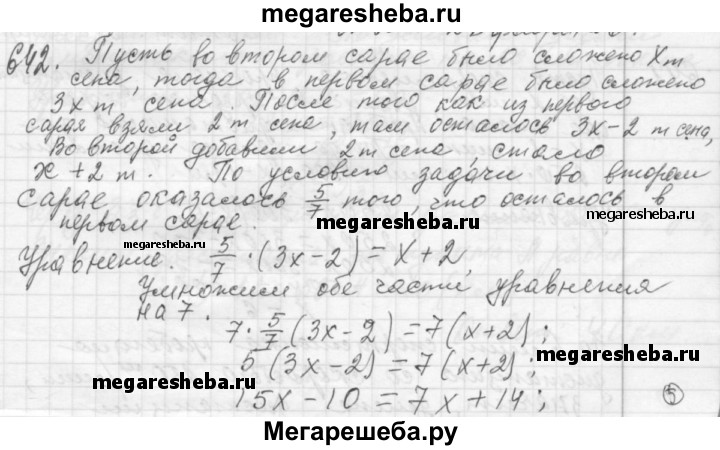 megaresheba.ru
642. Пусть во втором сарае было сложено x т
сена, тогда в первом сарае было сложено
3x т сена. После того как из первого
сарая взяли 2 т сена, там осталось 3x-2 т сена,
Во второй добавили 2 т сена, стало
x + 2 т. По условию задачи во втором
сарае оказалось 5/7 того, что осталось в
первом сарае.
megaresheba.ru
megaresheba.ru
megaresheba.ru
Уравнение. 5/7 · (3x-2) = x+2,
Умножим обе части уравнения
на 7.
7 · 5/7 (3x-2) = 7(x+2);
5 (3x-2) = 7(x+2);
megaresheba.ru
megaresheba.ru
15x-10 = 7x+14;
5
Мегарешеба.ру